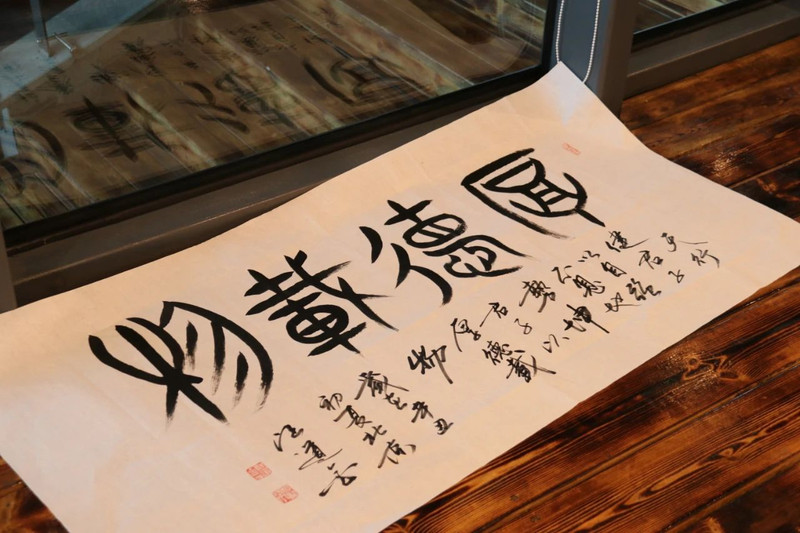 厚德載物
天行
健君子
以自強
不息地
勢坤
君子以
厚德載
物
歲在辛丑
初夏北京